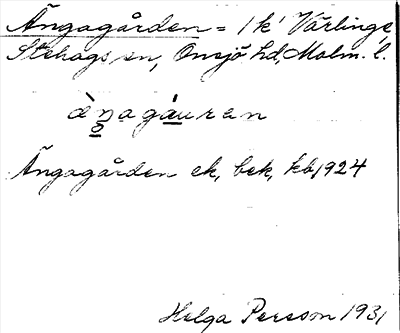 Ängagården = 1 k' Värlinge
Stehags sn, Onsjö hd, Malm. l.
ä̀ŋagáuran
Ängagården ek, bek, kb 1924
Helga Persson 1931